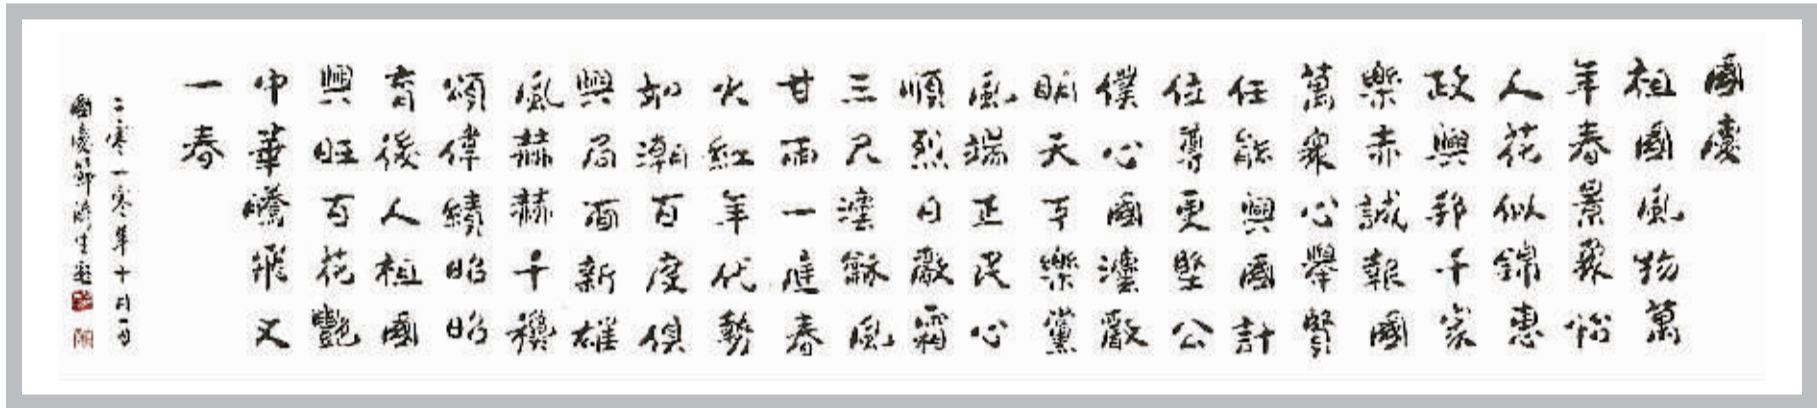 國慶
祖國風物萬
年春景怡
人花似錦惠
政興邦千家
樂赤誠報國
萬衆心舉賢
任能興國計
位尊更堅公
僕心國灋嚴
明天下樂黨
風端正民心
順烈日嚴霜
三尺灋龢風
甘雨一庭春
火紅年代勢
如潮百度俱
興局面新雄
風赫赫千穐
頌偉績昭昭
育後人祖國
興旺百花艷
中華騰飛又
一春
二零一零年十月一日
國慶節生題